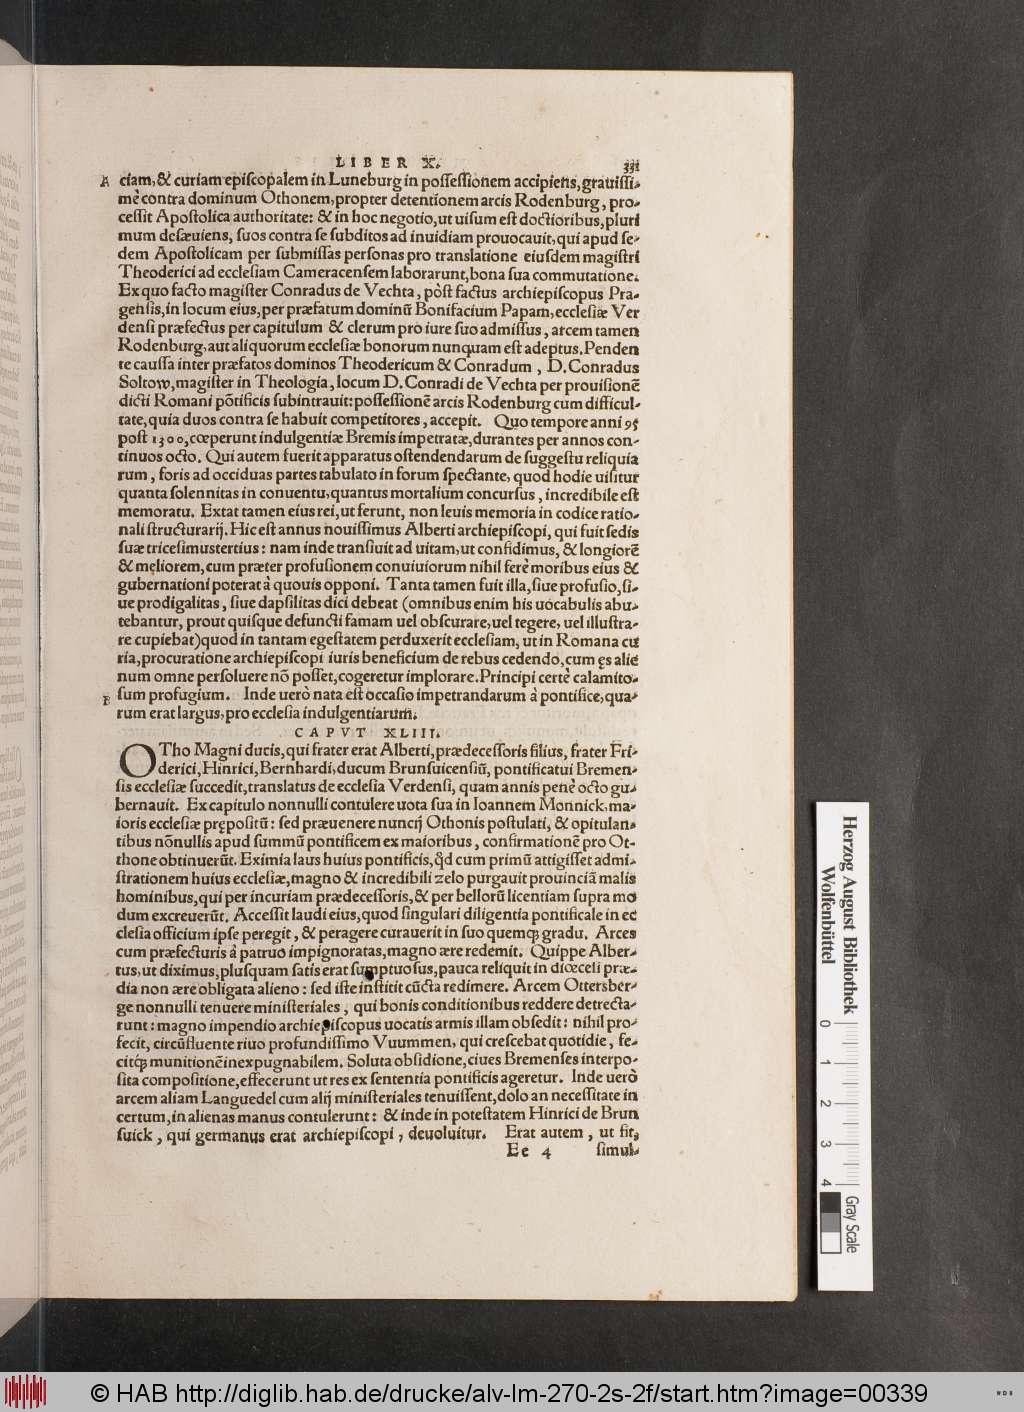 LIBER X. 331
A ciam, & curiam episcopalem in Luneburg in possessionem accipiens, grauissi-
mè contra dominum Othonem, propter detentionem arcis Rodenburg, pro-
cessit Apostolica authoritate: & in hoc negotio, ut uisum est doctioribus, pluri
mum desæuiens, suos contra se subditos ad inuidiam prouocauit, qui apud se-
dem Apostolicam per submissas personas pro translatione eiusdem magistri
Theoderici ad ecclesiam Cameracensem laborarunt, bona sua commutatione.
Ex quo facto magister Conradus de Vechta, pòst factus archiepiscopus Pra-
gensis, in locum eius, per præfatum dominũ Bonifacium Papam, ecclesiæ Ver
densi præfectus per capitulum & clerum pro iure suo admissus, arcem tamen
Rodenburg, aut aliquorum ecclesiæ bonorum nunquam est adeptus. Penden
te caussa inter præfatos dominos Theodericum & Conradum, D. Conradus
Soltow, magister in Theologia, locum D. Conradi de Vechta per prouisionẽ
dicti Romani põtificis subintrauit: possessionẽ arcis Rodenburg cum difficul-
tate, quia duos contra se habuit competitores, accepit. Quo tempore anni 95
post 1300, cœperunt indulgentiæ Bremis impetratæ, durantes per annos con-
tinuos octo. Qui autem fuerit apparatus ostendendarum de suggestu reliquia
rum, foris ad occiduas partes tabulato in forum spectante, quod hodie uisitur
quanta solennitas in conuentu, quantus mortalium concursus, incredibile est
memoratu. Extat tamen eius rei, ut ferunt, non leuis memoria in codice ratio-
nali structurarij. Hic est annus nouissimus Alberti archiepiscopi, qui fuit sedis
suæ tricesimustertius: nam inde transiuit ad uitam, ut confidimus, & longiorẽ
& meliorem, cum præter profusionem conuiuiorum nihil ferè moribus eius &
gubernationi poterat à quouis opponi. Tanta tamen fuit illa, siue profusio, si-
ue prodigalitas, siue dapsilitas dici debeat (omnibus enim his uocabulis abu-
tebantur, prout quisque defuncti famam uel obscurare, uel tegere, uel illustra-
re cupiebat) quod in tantam egestatem perduxerit ecclesiam, ut in Romana cu
ria, procuratione archiepiscopi iuris beneficium de rebus cedendo, cum ęs alie
num omne persoluere nõ posset, cogeretur implorare. Principi certè calamito-
B sum profugium. Inde uerò nata est occasio impetrandarum à pontifice, qua-
rum erat largus, pro ecclesia indulgentiarum.
CAPVT XLIII.
OTho Magni ducis, qui frater erat Alberti, prædecessoris filius, frater Fri-
derici, Hinrici, Bernhardi, ducum Brunsuicensiũ, pontificatui Bremen-
sis ecclesiæ succedit, translatus de ecclesia Verdensi, quam annis penè octo gu-
bernauit. Ex capitulo nonnulli contulere uota sua in Ioannem Monnick, ma-
ioris ecclesiæ prępositũ: sed præuenere nuncij Othonis postulati, & opitulan-
tibus nõnullis apud summũ pontificem ex maioribus, confirmationẽ pro Ot-
thone obtinuerũt. Eximia laus huius pontificis, ꝙ̃d cum primũ attigisset admi-
strationem huius ecclesiæ, magno & incredibili zelo purgauit prouinciã malis
hominibus, qui per incuriam prædecessoris, & per bellorũ licentiam supra mo
dum excreuerũt. Accessit laudi eius, quod singulari diligentia pontificale in ec
clesia officium ipse peregit, & peragere curauerit in suo quemqꝫ gradu. Arces
cum præfecturis à patruo impignoratas, magno ære redemit. Quippe Alber-
tus, ut diximus, plusquam satis erat sumptuosus, pauca reliquit in diœcesi præ-
dia non ære obligata alieno: sed iste institit cũcta redimere. Arcem Ottersber-
ge nonnulli tenuere ministeriales, qui bonis conditionibus reddere detrecta-
runt: magno impendio archiepiscopus uocatis armis illam obsedit: nihil pro-
fecit, circũfluente riuo profundissimo Vuummen, qui crescebat quotidie, fe-
citqꝫ munitionẽ inexpugnabilem. Soluta obsidione, ciues Bremenses interpo-
sita compositione, effecerunt ut res ex sententia pontificis ageretur. Inde uerò
arcem aliam Languedel cum alij ministeriales tenuissent, dolo an necessitate in
certum, in alienas manus contulerunt: & inde in potestatem Hinrici de Brun
suick, qui germanus erat archiepiscopi, deuoluitur. Erat autem, ut fit,
Ee 4 simul-
Herzog August Bibliothek
Wolfenbüttel
0 1 2 3 4
Gray Scale
© HAB http://diglib.hab.de/drucke/alv-lm-270-2s-2f/start.htm?image=00339
WDB